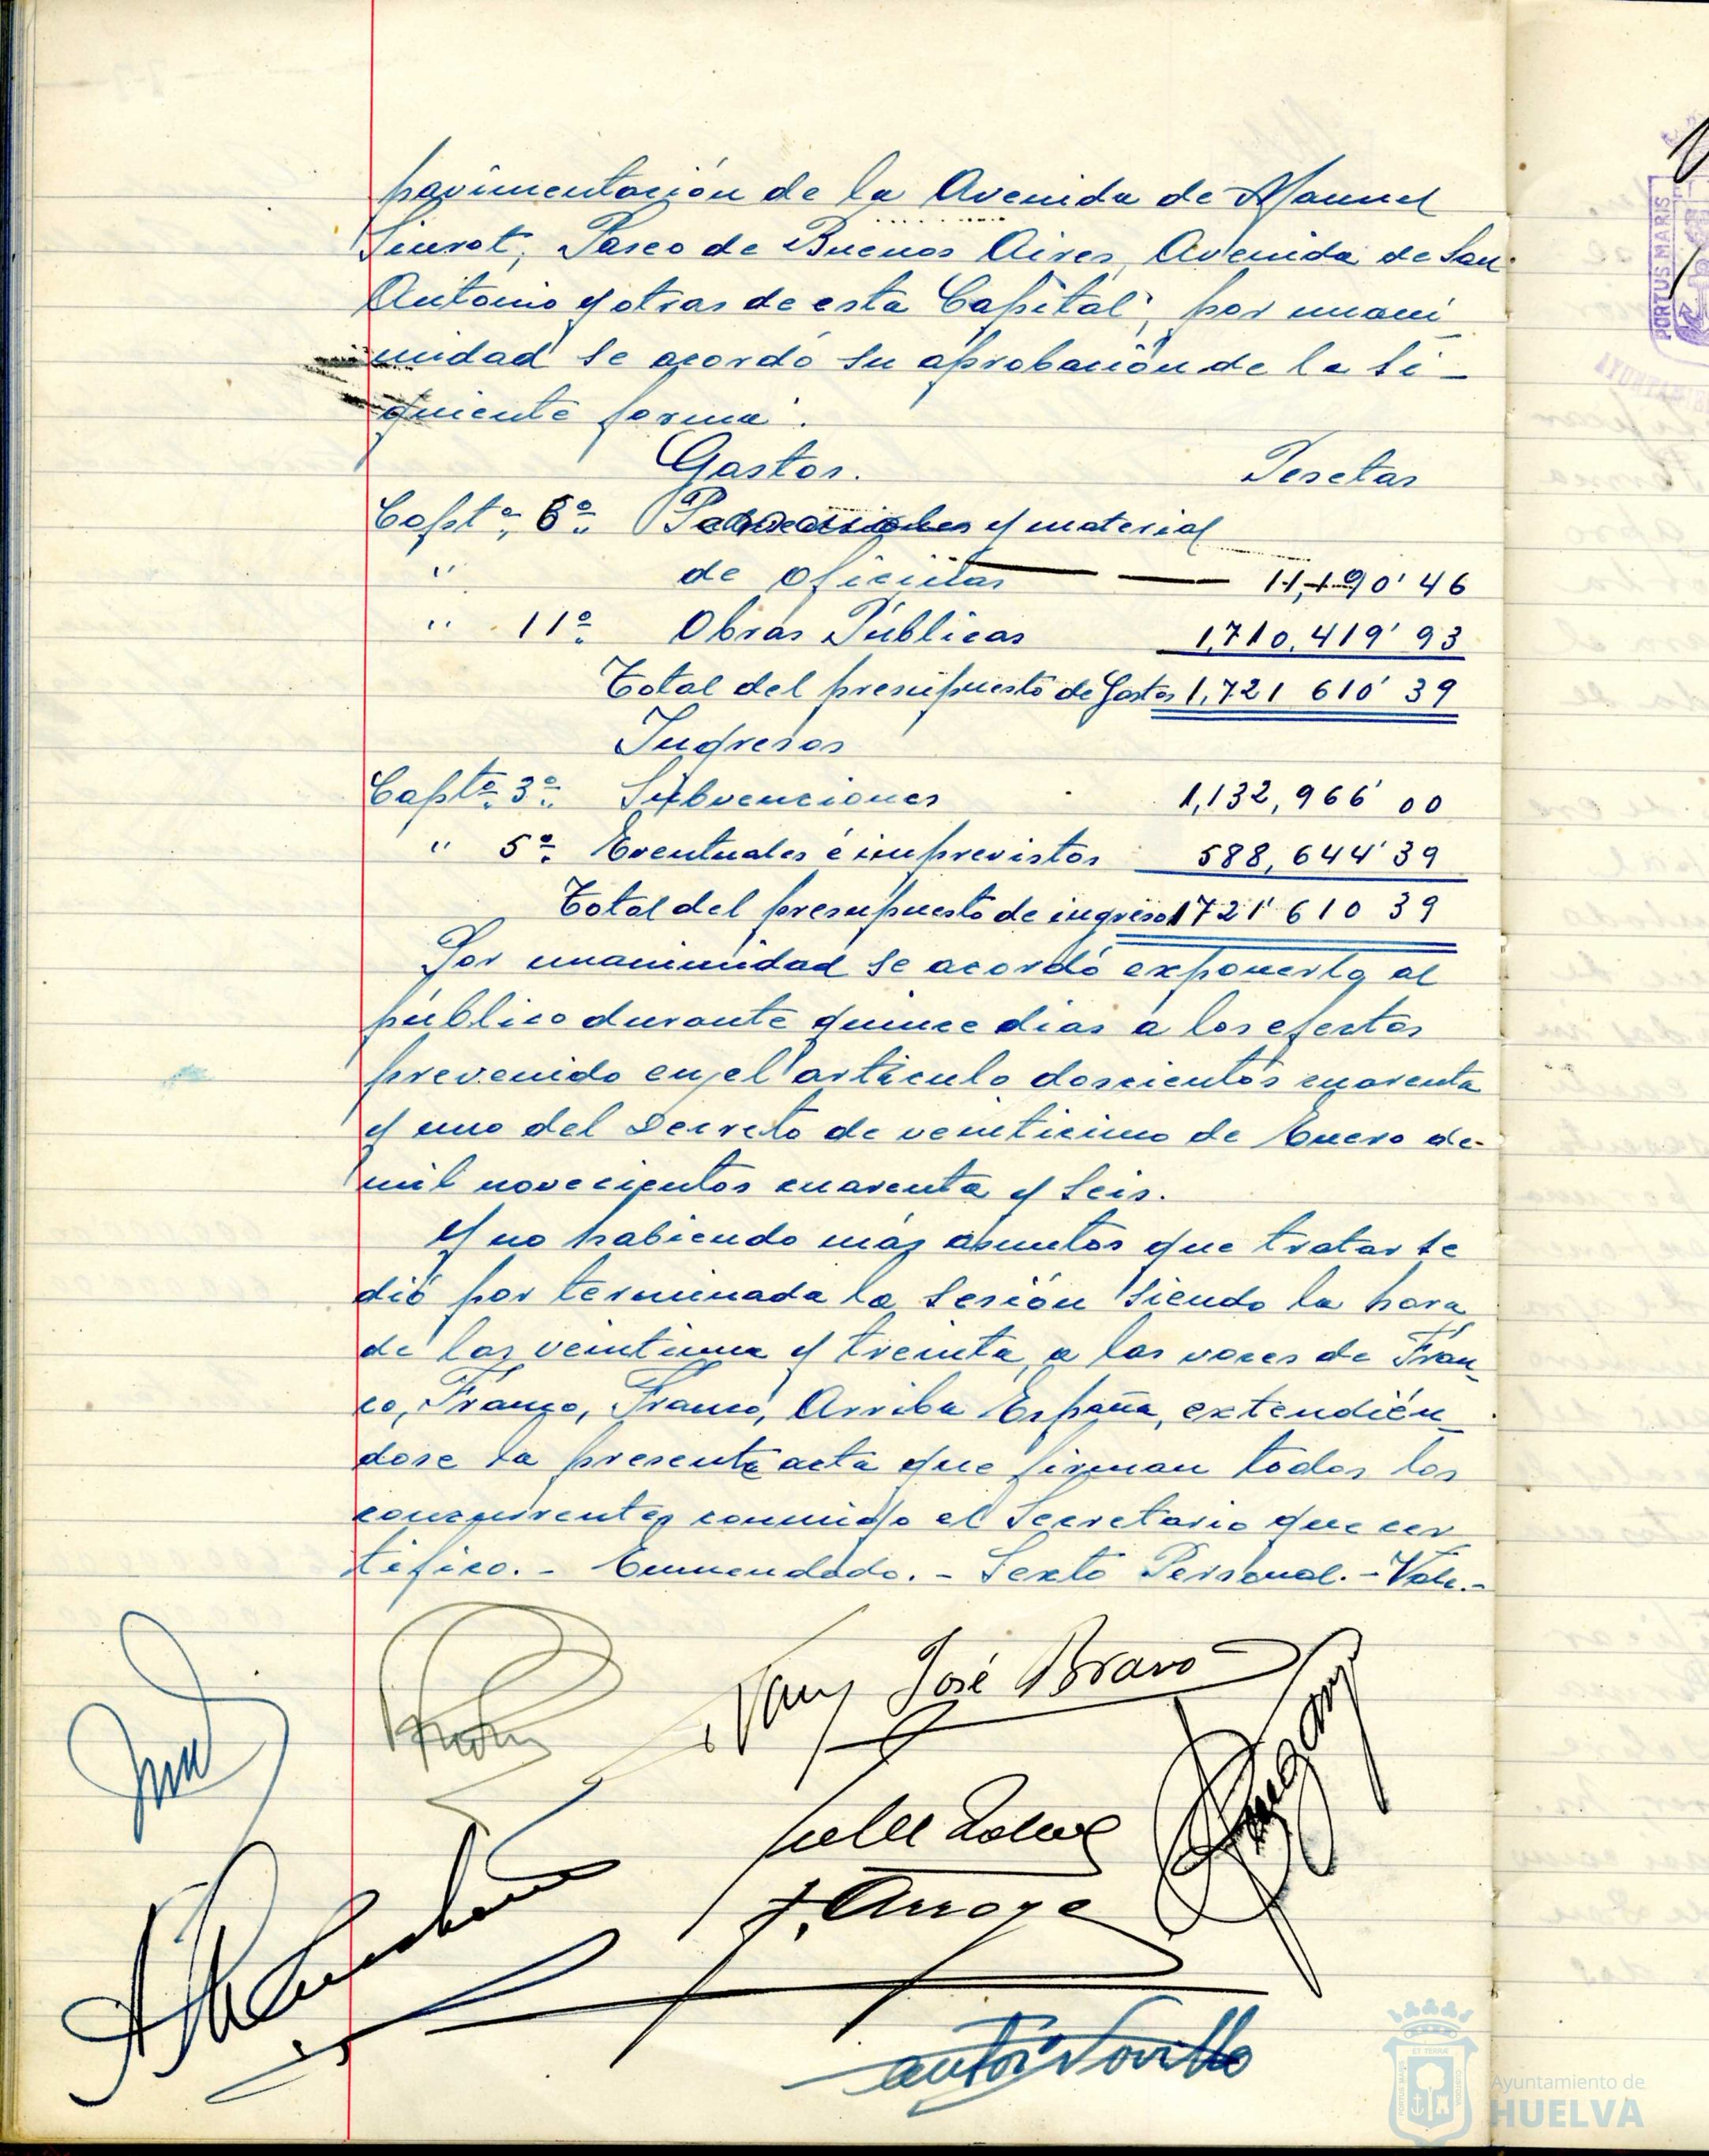 pavimentación de la Avenida de Manuel
Siurot, Paseo de Buenos Aires, Avenida de San
Antonio y otras de esta Capital", por unani
midad se acordó su aprobación de la si-
guiente forma:
Gastos. Pesetas
Capt.º 6º Personal y material
" de oficinas 11,190'46
" 11º Obras Públicas 1,710,419'93
Total del presupuesto de Gastos 1,721 610'39
Ingresos
Capt.º 3º Subvenciones 1,132,966'00
" 5º Eventuales é imprevistos 588,644'39
Total del presupuesto de ingresos 1721'610 39
Por unanimidad se acordó exponerlo al
público durante quince dias a los efectos
prevenido en el artículo doscientos cuarenta
y uno del Decreto de veinticinco de Enero de
mil novecientos cuarenta y seis.
Y no habiendo más asuntos que tratar se
dió por terminada la sesión siendo la hora
de las veintiuna y treinta, a las voces de Fran-
co, Franco, Franco, Arriba España, extendién-
dose la presente acta que firman todos los
concurrentes conmigo el Secretario que cer
tifico.- Enmendado.- Sexto Personal.- Vale.-
José Bravo
F. Arroyo
PORTUS MARIS
Ayuntamiento de
HUELVA